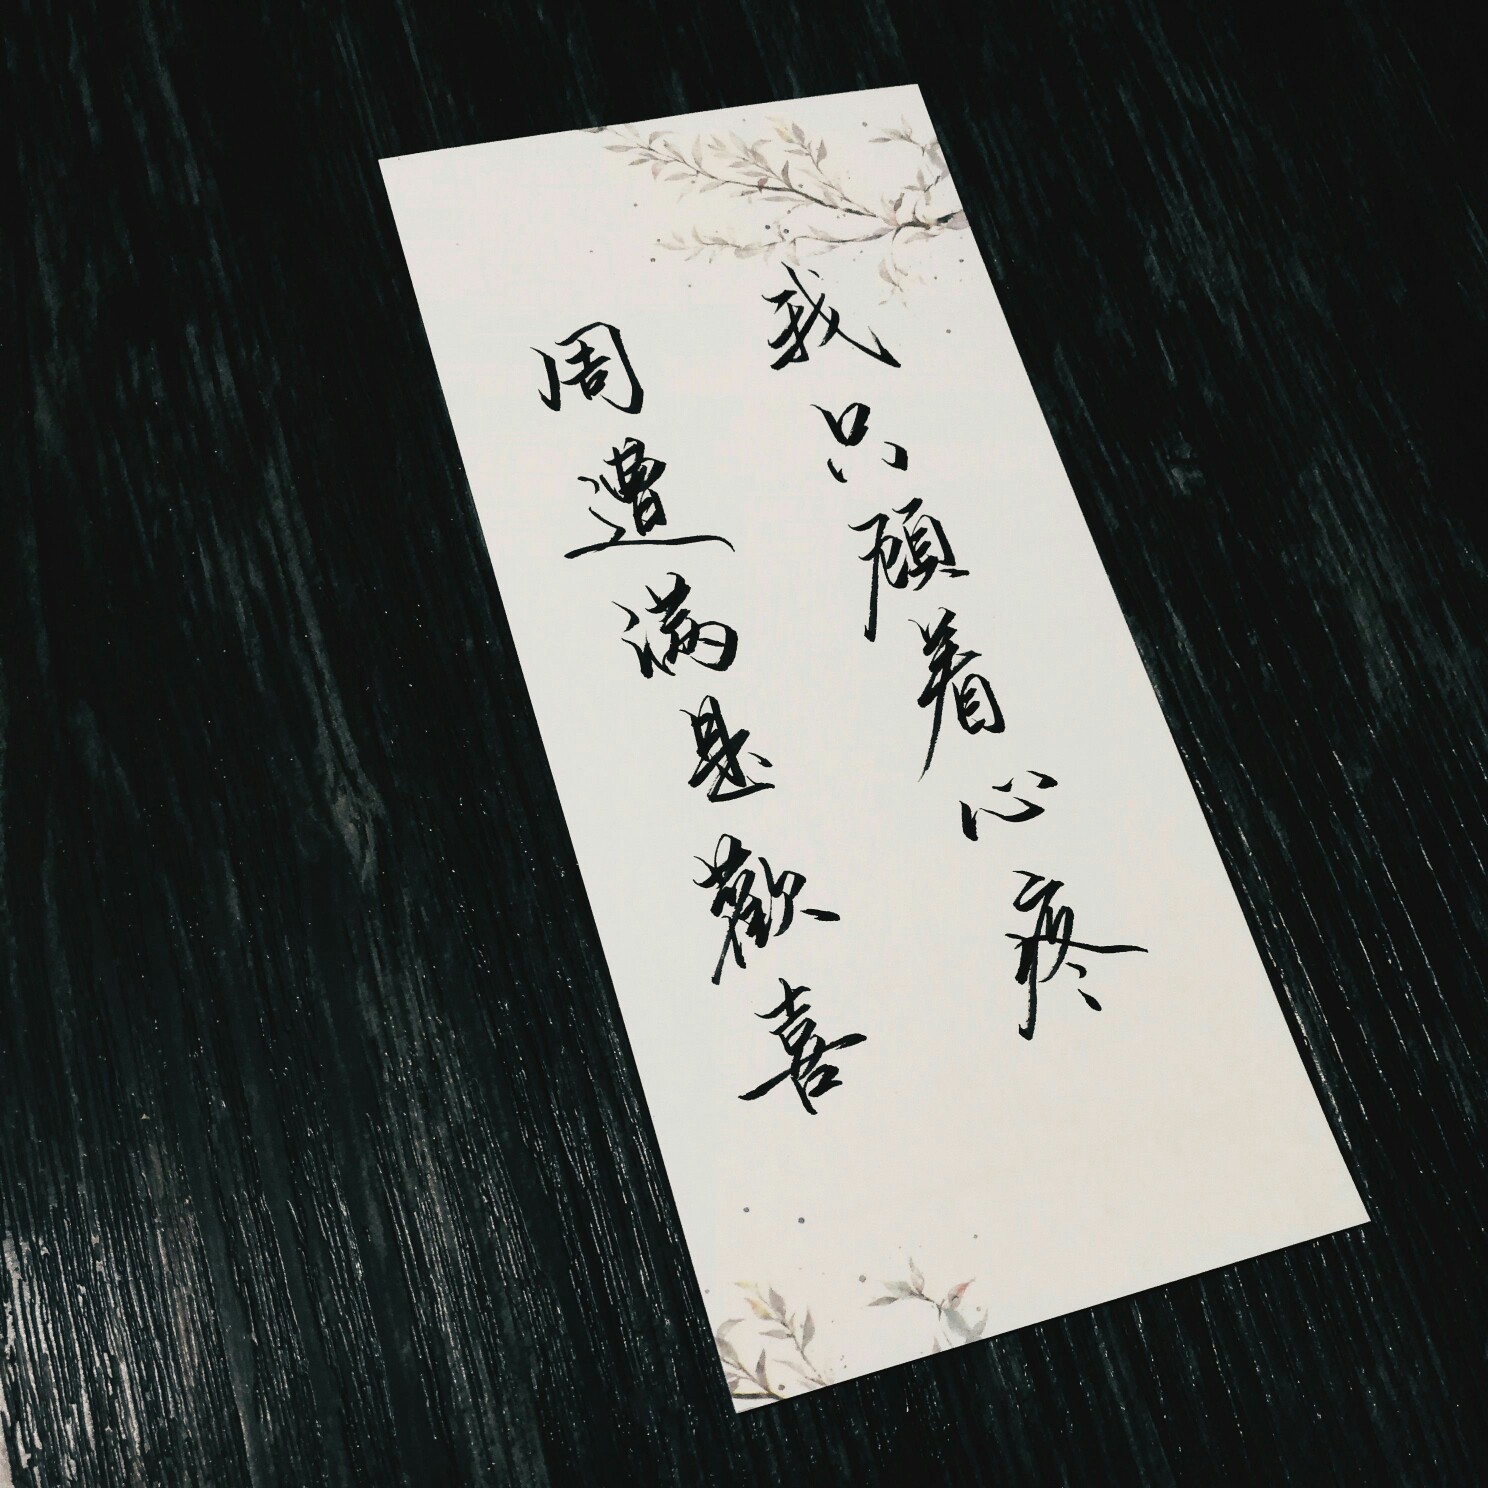 我只顧着心疼
周遭满是歡喜